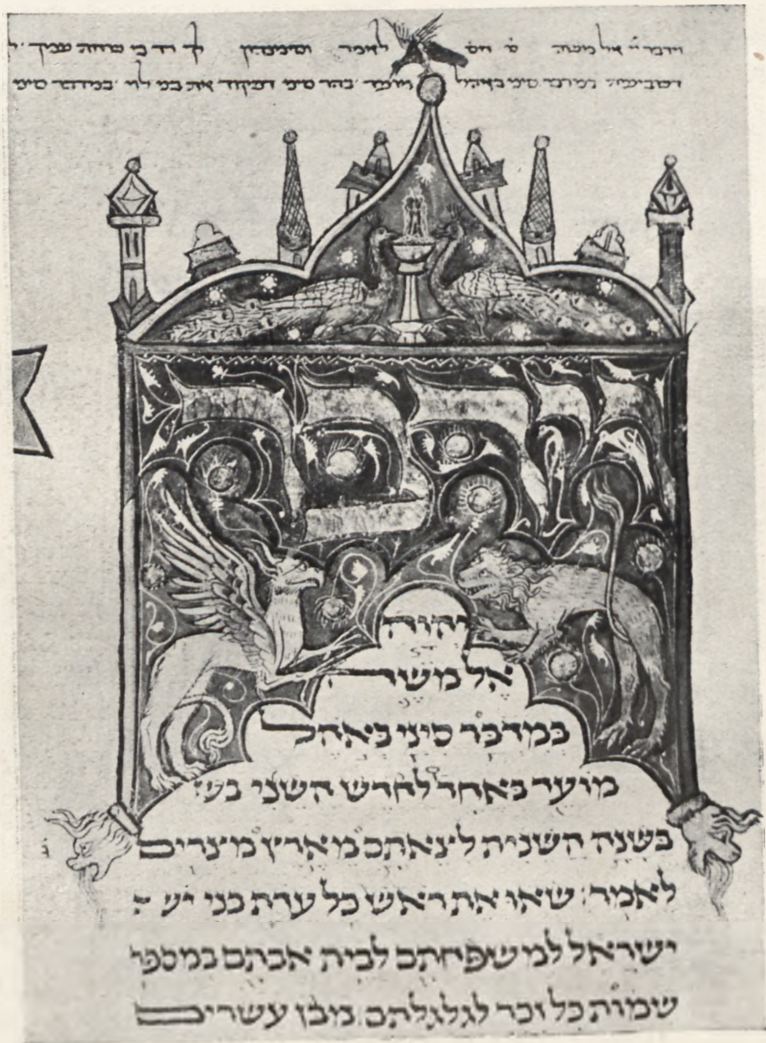 וידבר יי אל משה לאמר וסימניהון לך רד כי שחת עמך
במדבר סיני באהל מועד בהר סיני דפקוד את בני לוי במדבר סיני
וידבר
יהוה
אל משה
במדבר סיני באהל
מועד באחד לחדש השני בש
בשנה השנית לצאתם מארץ מצרים
לאמר: שאו את ראש כל עדת בני יש
ישראל למשפחתם לבית אבתם במספר
שמות כל זכר לגלגלתם מבן עשרים